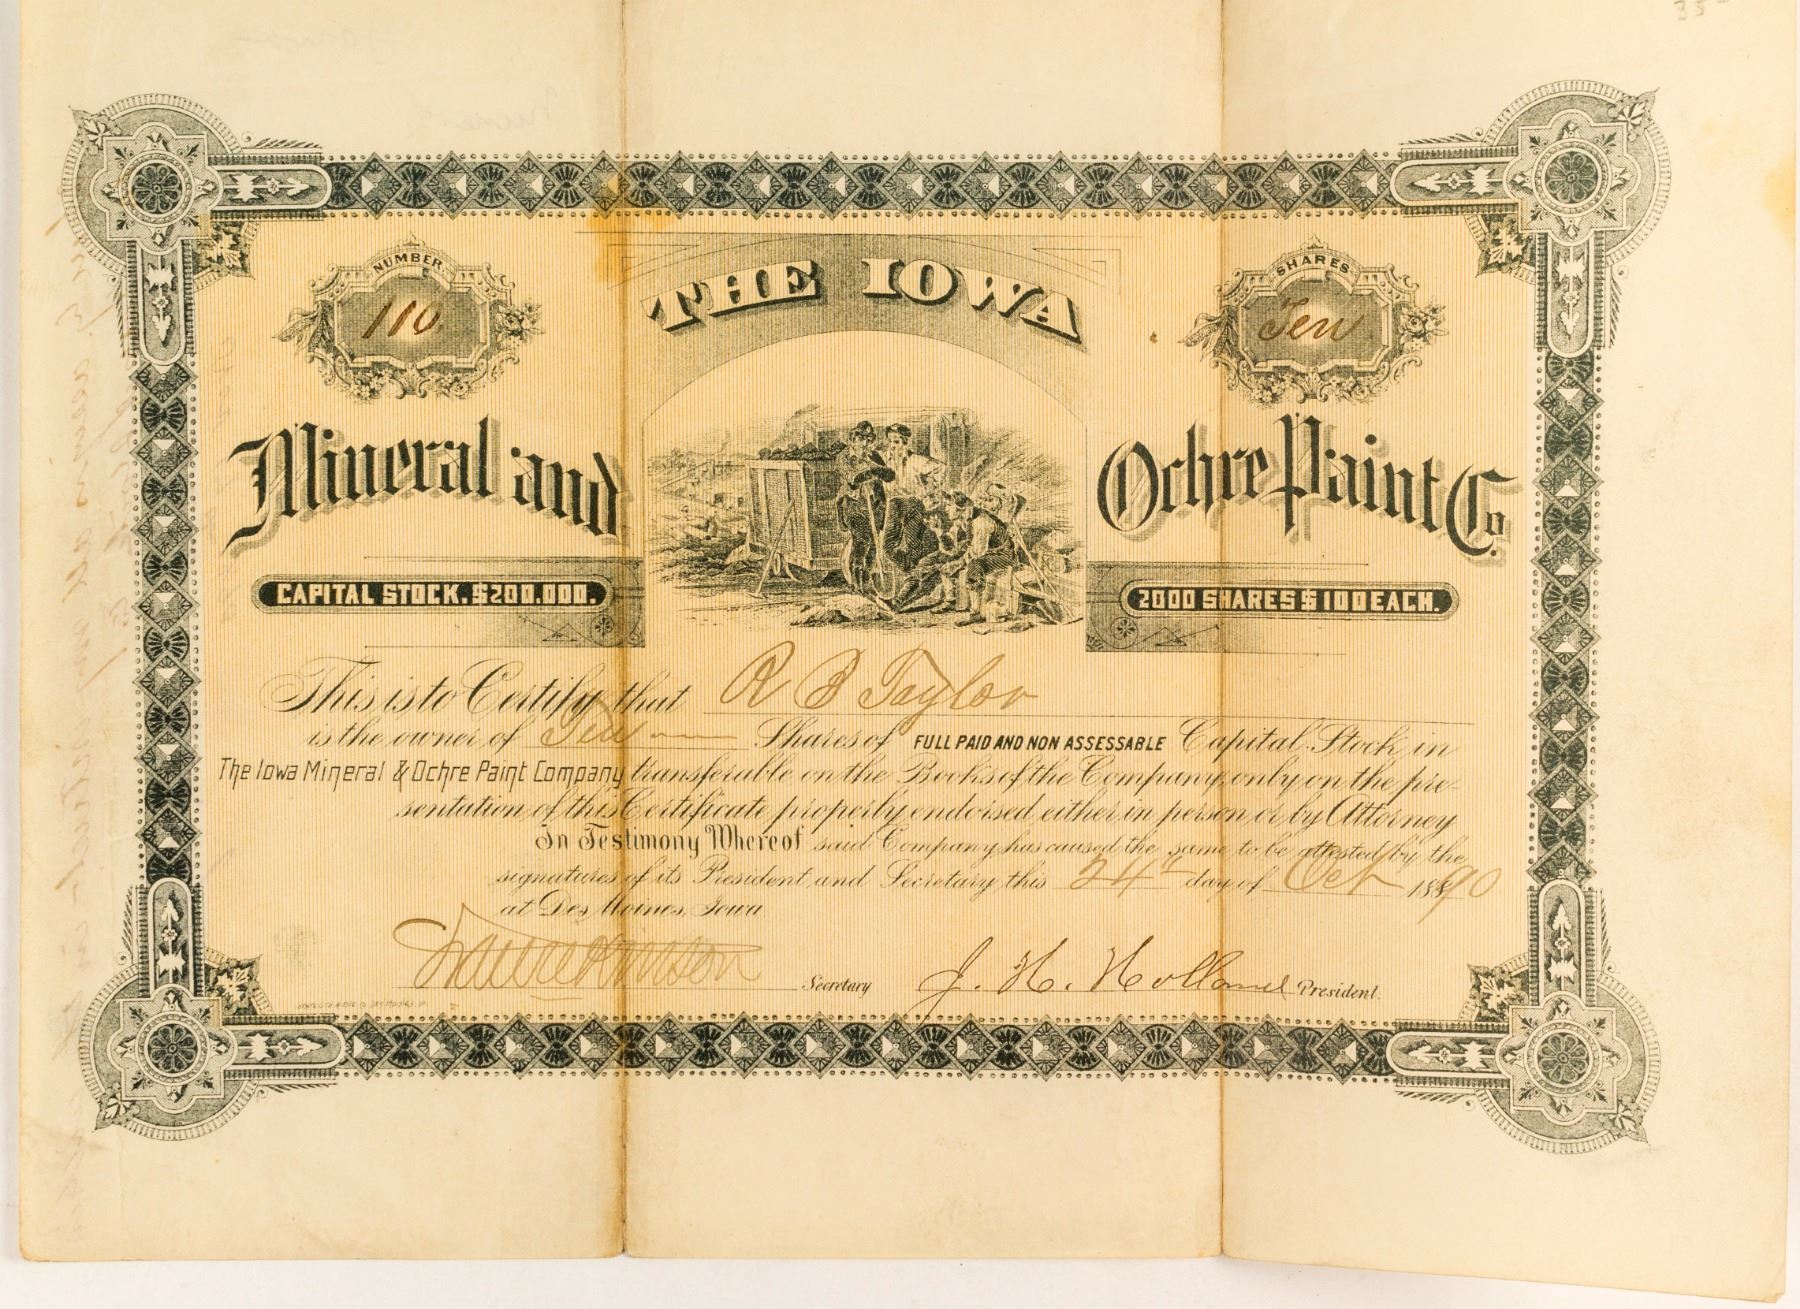 35
NUMBER
110
THE IOWA
SHARES
Ten
Mineral and
Ochre Paint Co.
CAPITAL STOCK. $200,000.
2000 SHARES $100 EACH.
This is to Certify that R B Taylor
is the owner of Ten Shares of FULL PAID AND NON ASSESSABLE Capital Stock in
The Iowa Mineral & Ochre Paint Company transferable on the Books of the Company, only on the pre-
sentation of this Certificate properly endorsed either in person or by Attorney
In Testimony Whereof said Company has caused the same to be attested by the
signatures of its President and Secretary, this 24th day of Oct 1890
at Des Moines, Iowa
Secretary
J. H. Holland President.